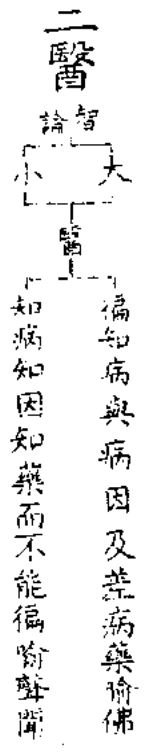 二醫
智論
大
小
醫
徧知病與病因及差病藥喻佛
知病知因知藥而不能徧喻聲聞